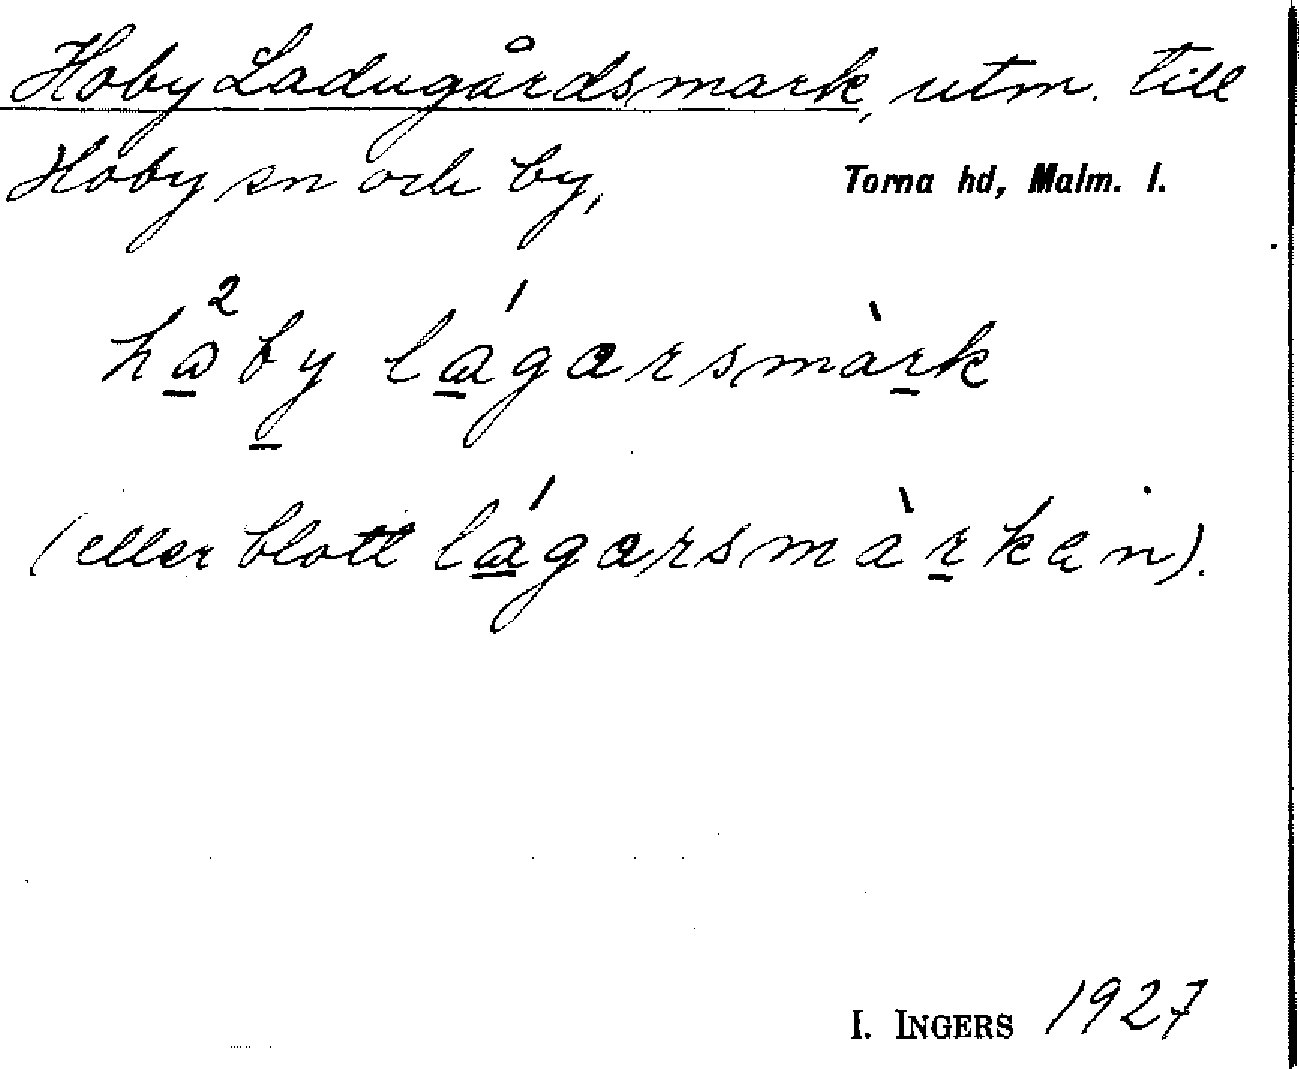 Hoby Ladugårdsmark, utm. till
Hoby sn och by,
Torna hd, Malm. l.
hω²by lágarsmàrk
(eller blott lágarsmàrken).
I. INGERS 1927